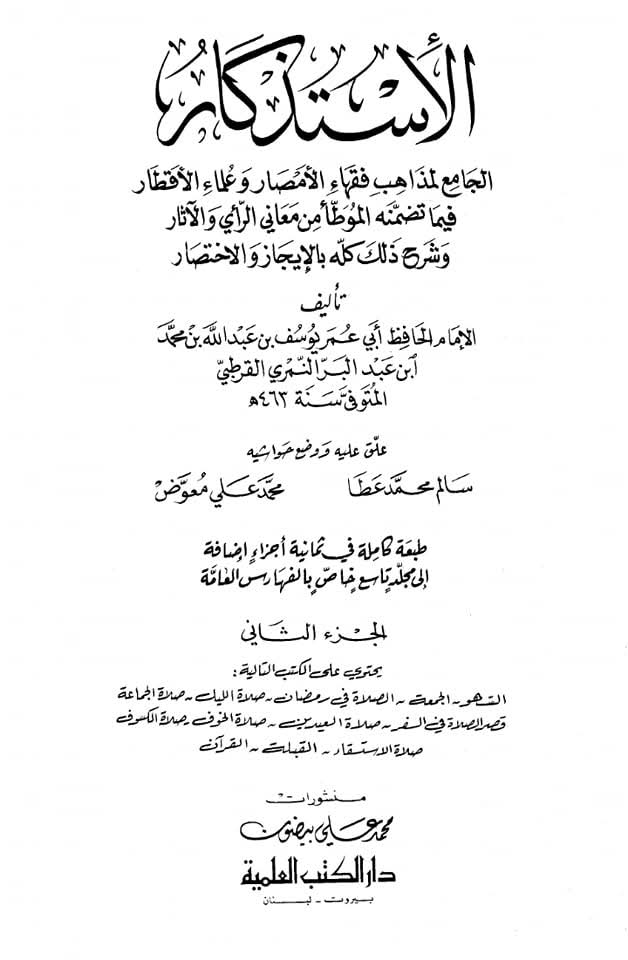 الأستذكار
الجامع لمذاهب فقهاء الأمصار وعلماء الأقطار
فيما تضمنه الموطأ من معاني الرأي والآثار
وشرح ذلك كله بالإيجاز والاختصار
تأليف
الإمام الحافظ أبي عمر يوسف بن عبد الله بن محمد
ابن عبد البر النمري القرطبي
المتوفى سنة ٤٦٣ هـ
علق عليه ووضع حواشيه
سالم محمد عطا محمد علي معوض
طبعة كاملة في ثمانية أجزاء إضافة
إلى مجلد تاسع خاص بالفهارس العامة
الجزء الثاني
يحتوي على الكتب التالية:
السهو - الجمعة - الصلاة في رمضان - صلاة الليل - صلاة الجماعة
قصر الصلاة في السفر - صلاة العيدين - صلاة الخوف - صلاة الكسوف
صلاة الاستسقاء - القبلة - القرآن
منشورات
محمد علي بيضون
دار الكتب العلمية
بيروت - لبنان